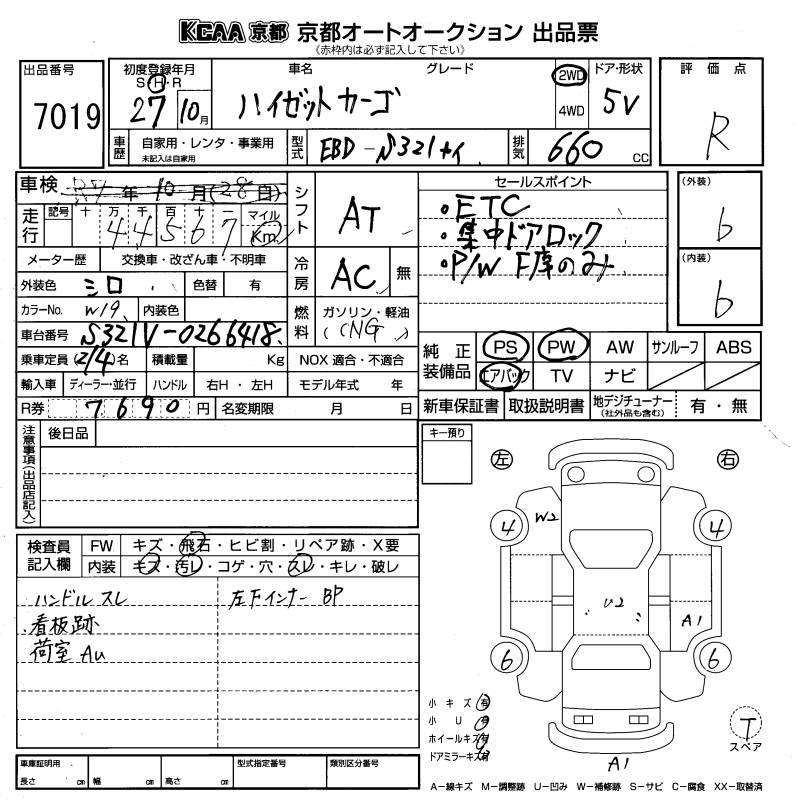 KCAA 京都 京都オートオークション 出品票
(赤枠内は必ず記入して下さい)
出品番号 7019
初度登録年月 S・H・R 27 10月
車名 グレード ハイゼットカーゴ
2WD 4WD
ドア・形状 5V
評価点 R
車歴 自家用・レンタ・事業用 未記入は自家用
型式 EBD-S321V
排気 660 cc
車検 R7年10月(28日)
走行 記号 十 万 千 百 十 一 マイル Km
44567
シフト AT
セールスポイント
・ETC
・集中ドアロック
・P/W F席のみ
(外装) b
(内装) b
メーター歴 交換車・改ざん車・不明車
冷房 AC 無
外装色 シロ 色替 有
カラーNo. W19 内装色
燃料 ガソリン・軽油 (CNG)
車台番号 S321V-0266418
乗車定員 (2/4)名 積載量 Kg NOX 適合・不適合
輸入車 ディーラー・並行 ハンドル 右H・左H モデル年式 年
R券 7690円 名変期限 月 日
純正装備品 PS PW AW サンルーフ ABS
エアバック TV ナビ
新車保証書 取扱説明書 地デジチューナー (社外品も含む) 有・無
注意事項(出品店記入) 後日品
キー預り
左 右
検査員記入欄 FW キズ・飛石・ヒビ割・リペア跡・X要
内装 キズ・汚レ・コゲ・穴・スレ・キレ・破レ
ハンドル スレ 左Fインナー BP
看板跡
荷室 AU
4 W2 4
U2 A1
6 6
A1
小キズ 有
小U 有
ホイールキズ 有
ドアミラーキズ 有
T スペア
車庫証明用 長さ cm 幅 cm 高さ cm 型式指定番号 類別区分番号
A-線キズ M-調整跡 U-凹み W-補修跡 S-サビ C-腐食 XX-取替済